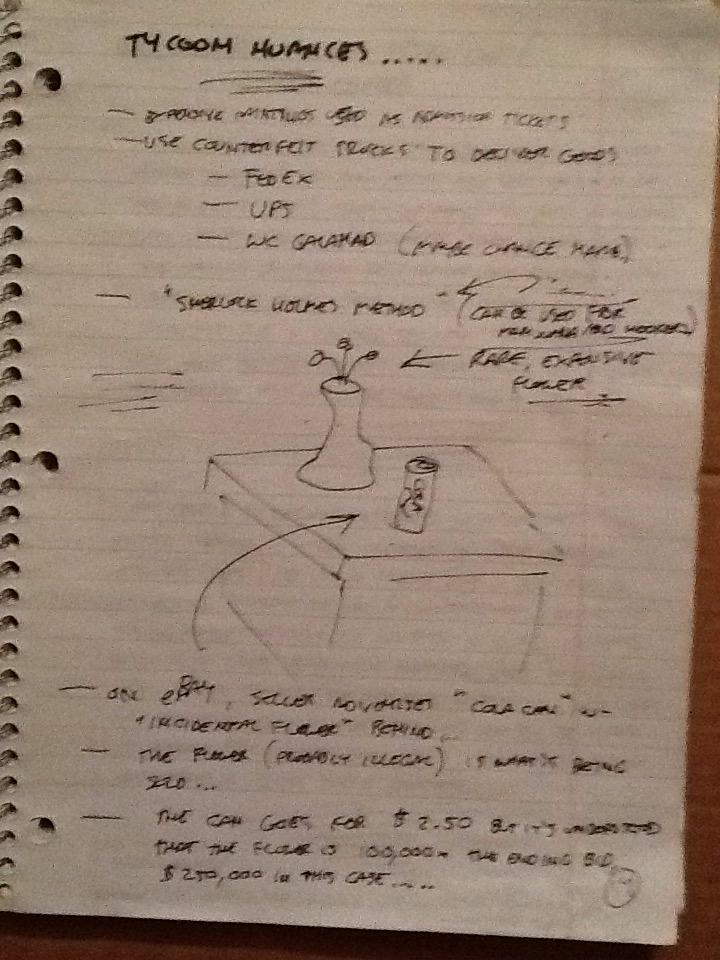 TYCOON NUANCES .....
— USED AS TICKETS
— USE COUNTERFEIT TRUCKS TO DELIVER GOODS
— FEDEX
— UPS
— WC GALAHAD (MAYBE CHANCE NAME)
— "SHERLOCK HOLMES METHOD" (CAN BE USED FOR
HOOKERS)
RARE, EXPENSIVE
FLOWER
COLA
— ON eBAY, SELLER ADVERTISES "COLA CAN" W-
"INCIDENTAL FLOWER" BEHIND..
— THE FLOWER (PROBABLY ILLEGAL) IS WHAT'S BEING
SOLD...
— THE CAN GOES FOR $2.50 BUT IT'S UNDERSTOOD
THAT THE FLOWER IS 100,000x THE ENDING BID,
$250,000 IN THIS CASE.....